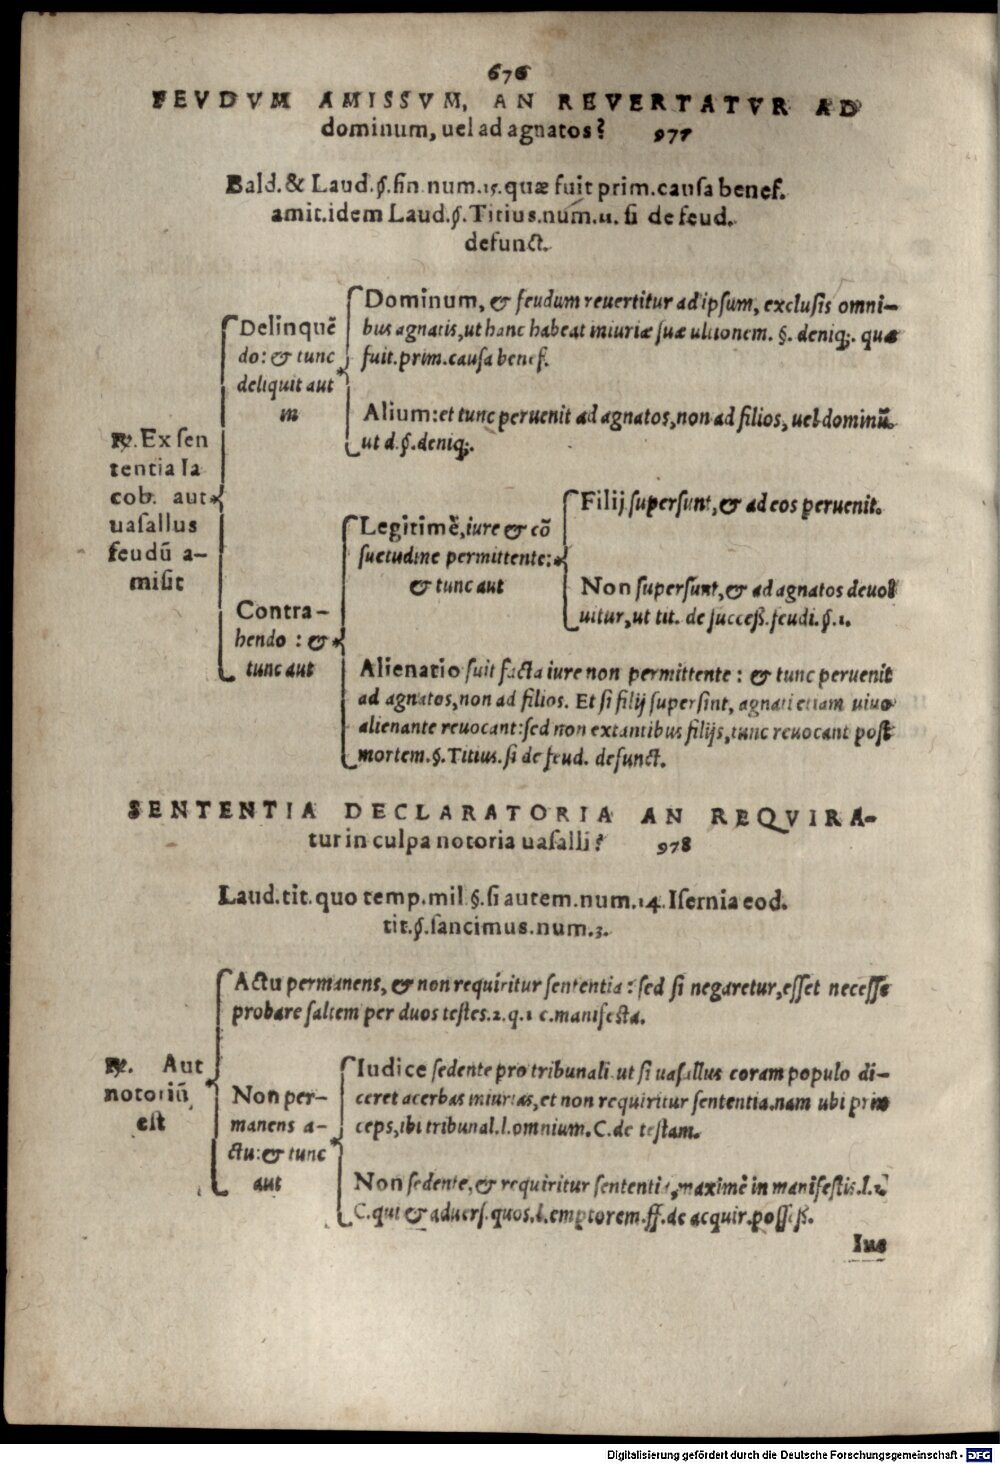 676
FEVDVM AMISSVM, AN REVERTATVR AD
dominum, uel ad agnatos? 977
Bald. & Laud. §. fin num. 15. quæ fuit prim. causa benef.
amit. idem Laud. §. Titius. num. 11. si de feud.
defunct.
℞. Ex sen
tentia Ia
cob. aut
uasallus
feudū a-
misit
Delinquē
do: & tunc
deliquit aut
in
Dominum, & feudum reuertitur ad ipsum, exclusis omni-
bus agnatis, ut hanc habeat iniuriæ suæ ultionem. §. deniq;. quæ
fuit. prim. causa benef.
Alium: et tunc peruenit ad agnatos, non ad filios, uel dominū.
ut d. §. deniq;.
Contra-
hendo : &
tunc aut
Legitimè, iure & cō
suetudine permittente:
& tunc aut
Filij supersunt, & ad eos peruenit.
Non supersunt, & ad agnatos deuol
uitur, ut tit. de success. feudi. §. 1.
Alienatio fuit facta iure non permittente : & tunc peruenit
ad agnatos, non ad filios. Et si filij supersint, agnati etiam uiuo
alienante reuocant: sed non extantibus filijs, tunc reuocant post
mortem. §. Titius. si de feud. defunct.
SENTENTIA DECLARATORIA AN REQVIRA-
tur in culpa notoria uasalli? 978
Laud. tit. quo temp. mil §. si autem. num. 14. Isernia eod.
tit. §. sancimus. num. 3.
℞. Aut
notoriū
est
Actu permanens, & non requiritur sententia : sed si negaretur, esset necesse
probare saltem per duos testes. 2. q. 1 c. manifesta.
Non per-
manens a-
ctu: & tunc
aut
Iudice sedente pro tribunali. ut si uasallus coram populo di-
ceret acerbas iniurias, et non requiritur sententia. nam ubi prin
ceps, ibi tribunal. l. omnium. C. de testam.
Non sedente, & requiritur sententia, maximè in manifestis. l. 2.
C. qui & aduers. quos. l. emptorem. ff. de acquir. possess.
Ius
Digitalisierung gefördert durch die Deutsche Forschungsgemeinschaft - DFG